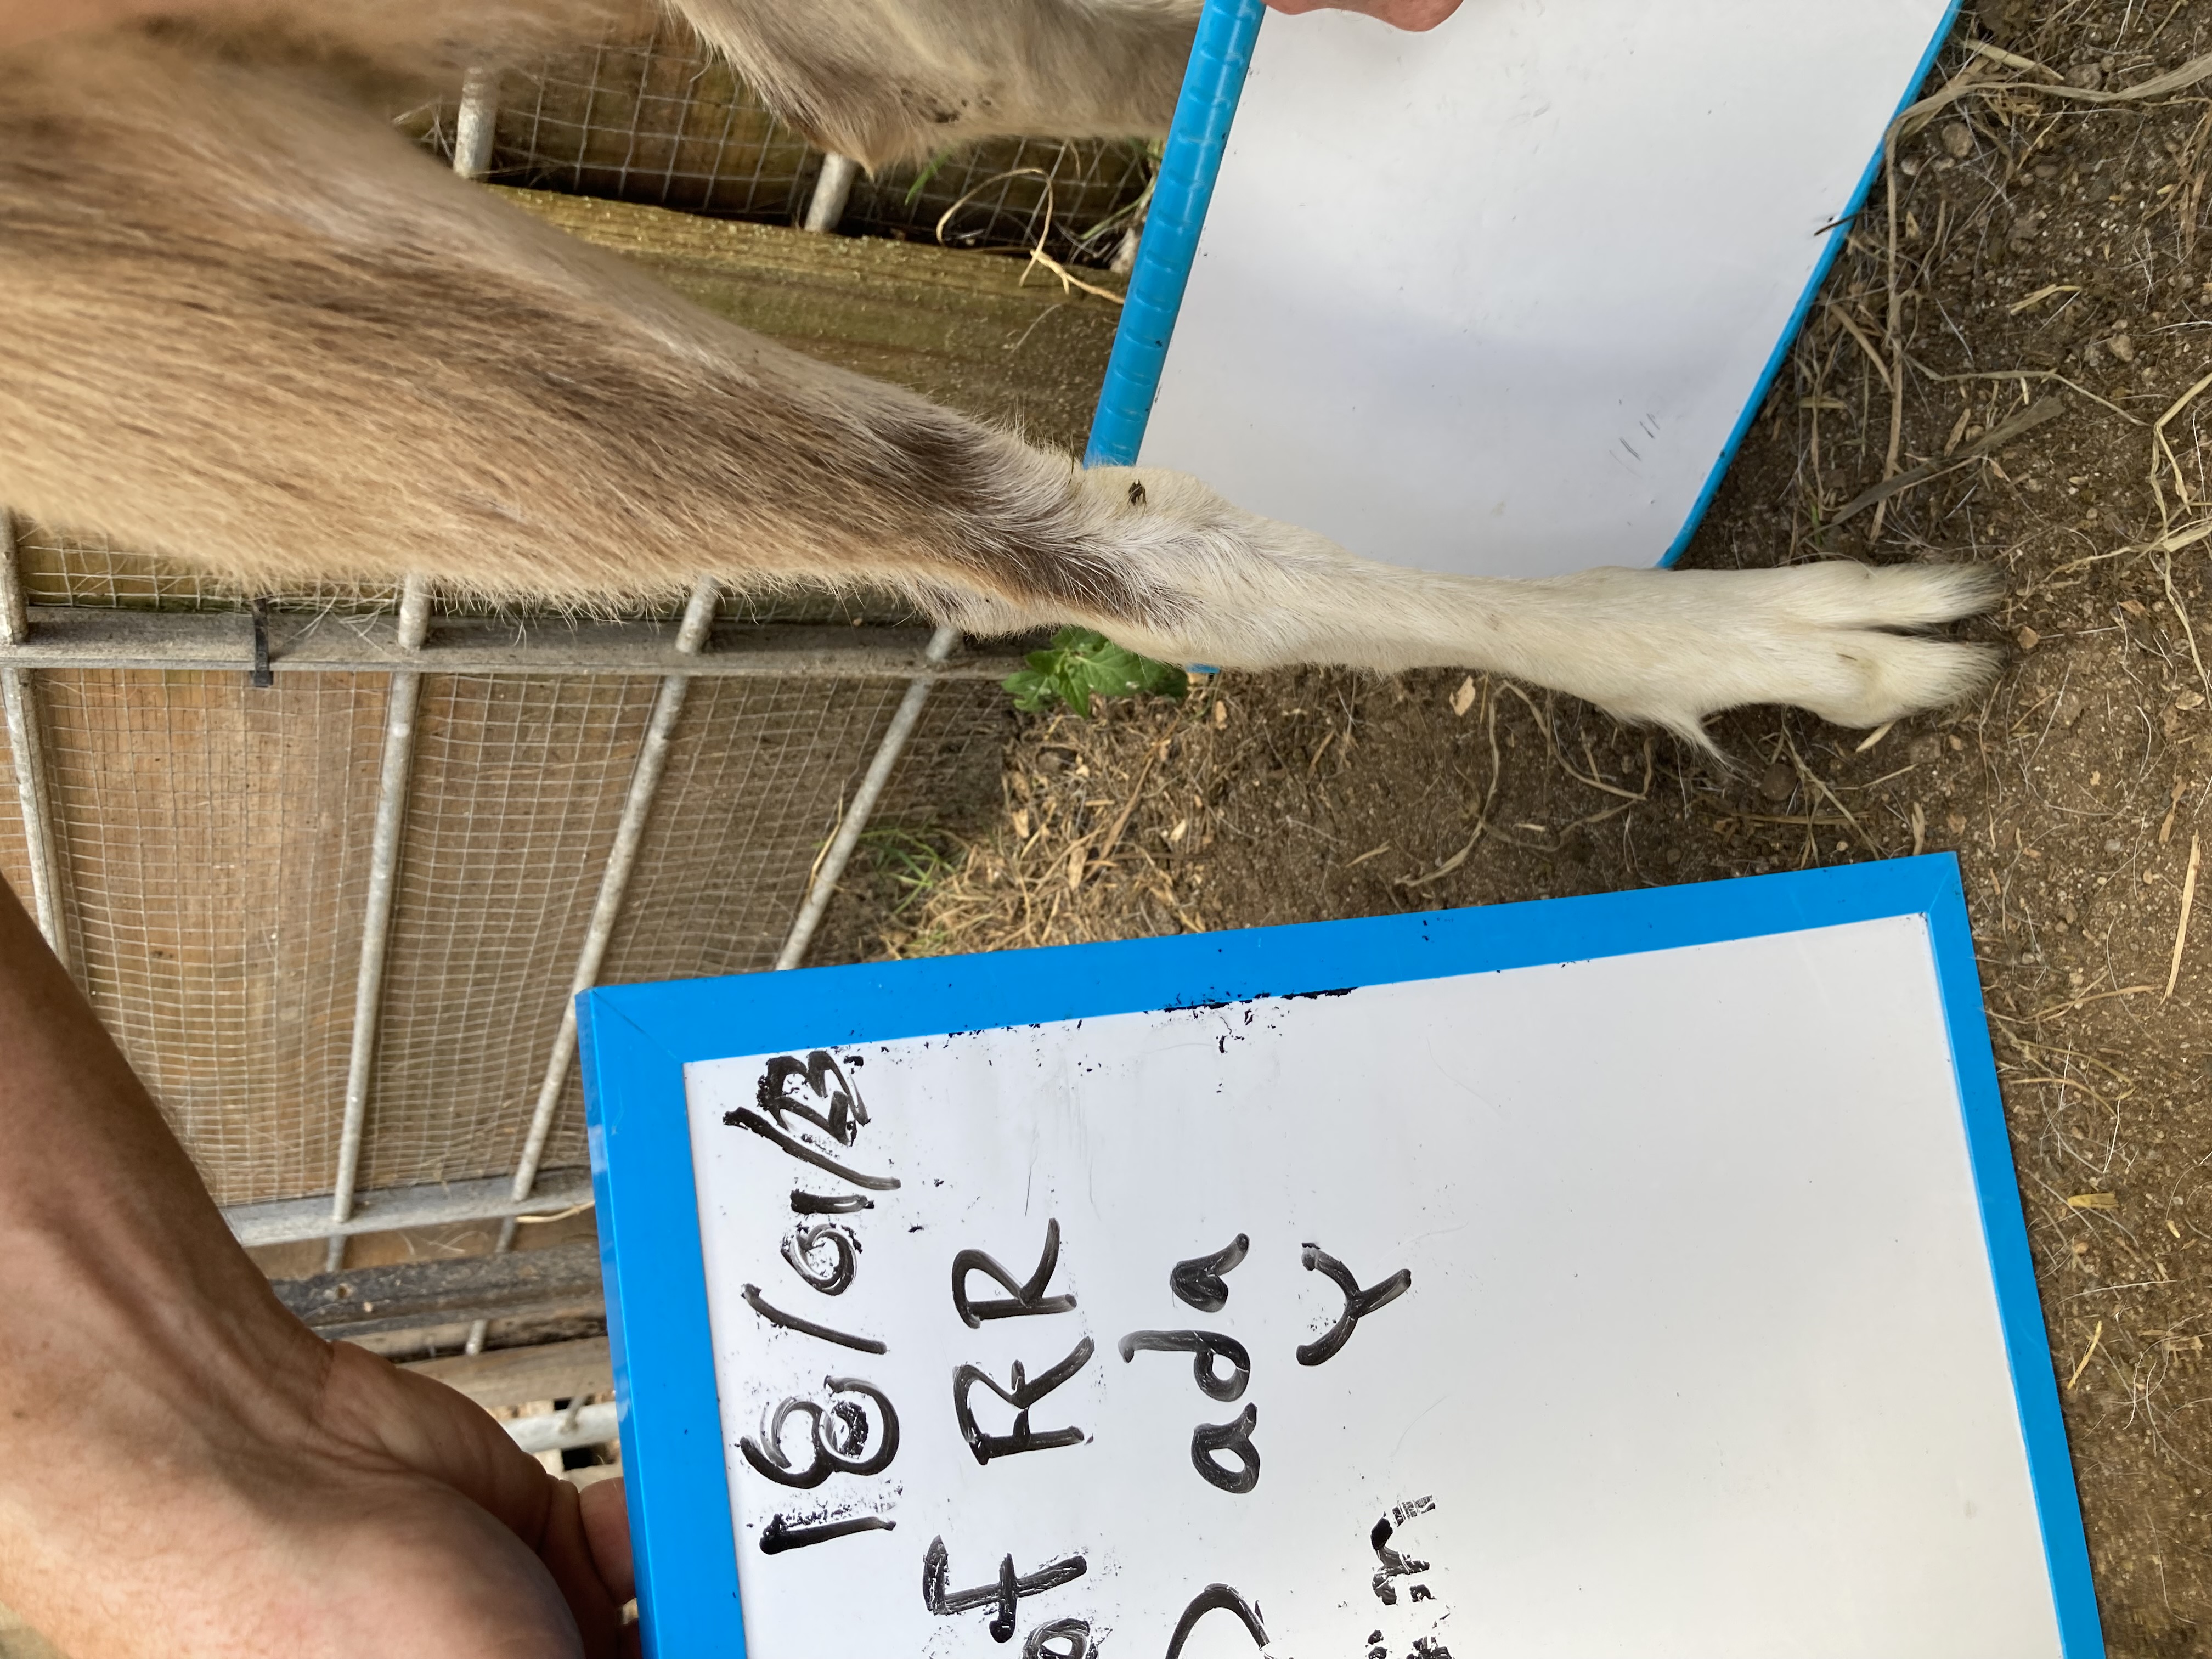 18/01/23
of RR
ada
Y